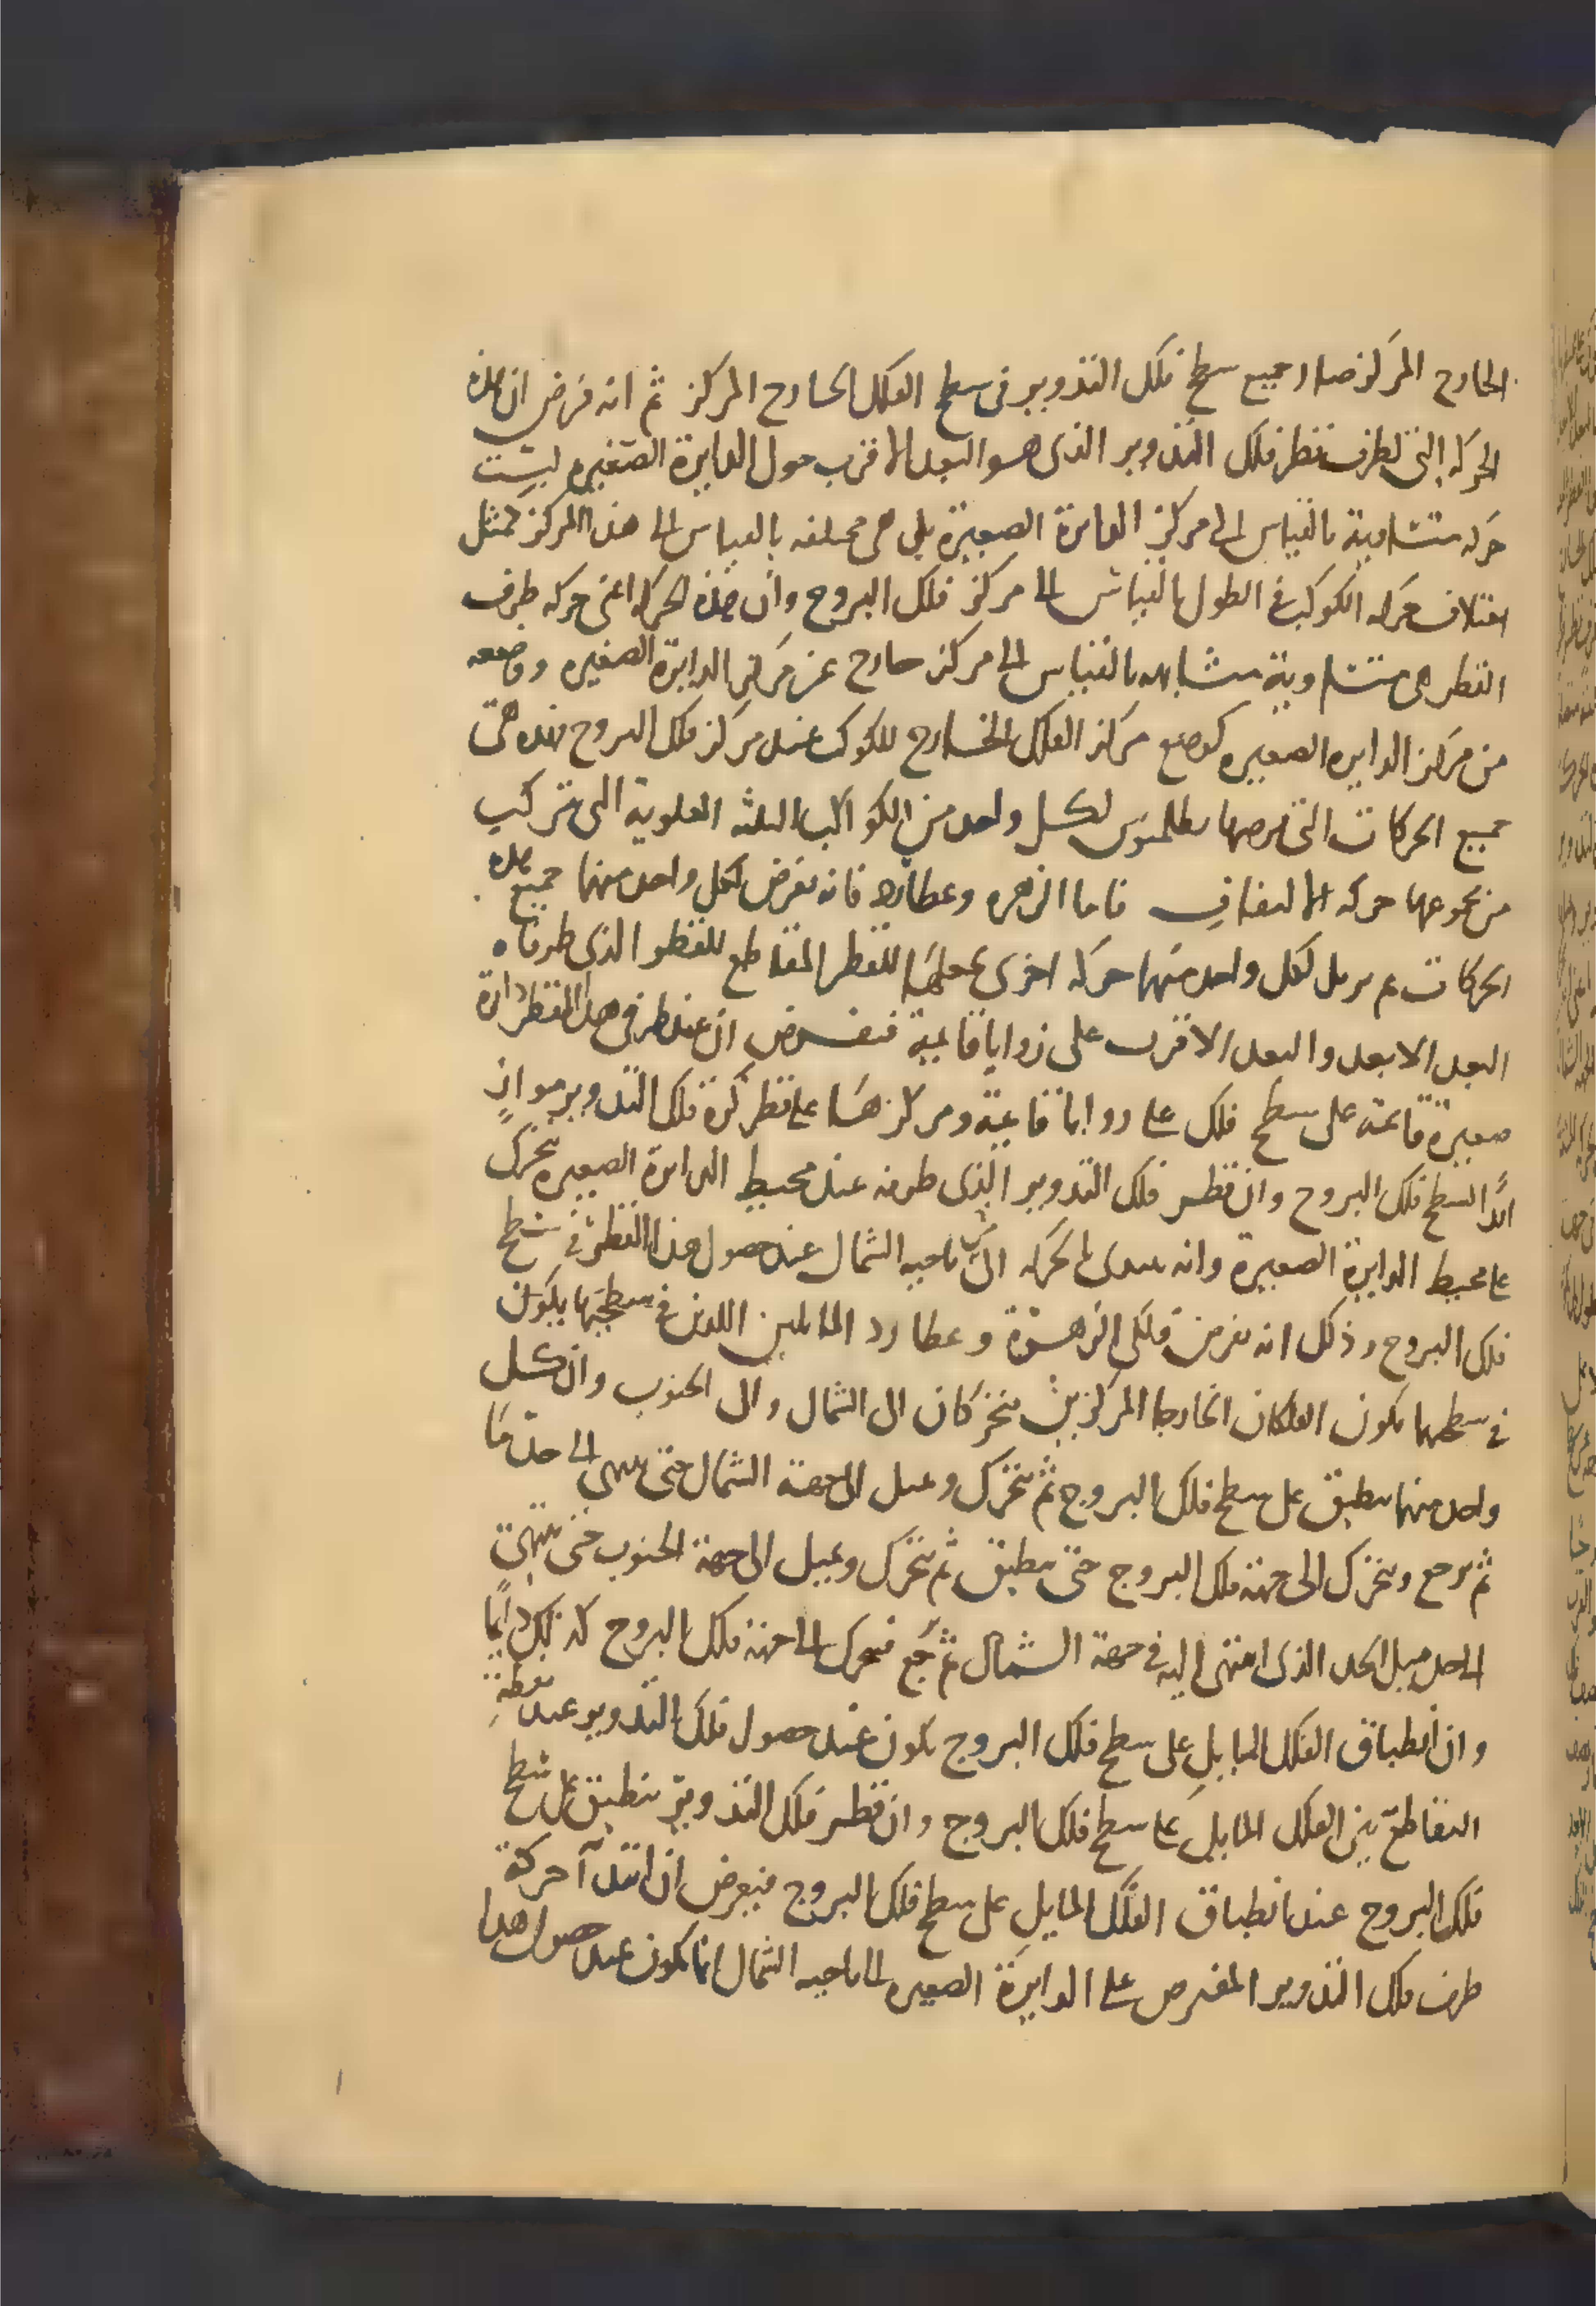 الخارج المركز صار جميع سطح فلك التدوير في سطح الفلك الخارج المركز ثم انه فرض ان هذه
الحركة التي لطرف قطر فلك التدوير الذي هو البعد الاقرب حول الدايرة الصغيره ليست
حركه متساوية بالقياس الى مركز الدايرة الصغيرة بل هي مختلفه بالقياس الى هذا المركز كمثل
اختلاف حركه الكوكب في الطول بالقياس الى مركز فلك البروج وان هذه الحركه اعني حركه طرف
القطر هي متساوية متشابهه بالقياس الى مركز خارج عن مركز الدايرة الصغيره ووضعه
من مركز الدايره الصغيره كوضع مركز الفلك الخارج للكوكب عند مركز فلك البروج فهذه هي
جميع الحركات التي فرضها بطلميوس لكل واحد من الكواكب الثلثه العلوية التي تتركب
من مجموعها حركه الالتفاف فاما الزهره وعطارد فانه يفرض لكل واحد منهما جميع هذه
الحركات ثم يزيد لكل واحد منهما حركه اخرى يجعلها للقطر المقاطع للقطر الذي طرفاه
البعد الابعد والبعد الاقرب على زوايا قايمة فيفرض ان عند طرفي هذا القطر دايرة
صغيرة قايمة على سطح فلك على زوايا قايمة ومركزها على قطر كرة فلك التدوير مواز
ابدا لسطح فلك البروج وان قطر فلك التدوير الذي طرفه عند محيط الدايرة الصغيره يتحرك
على محيط الدايرة الصغيرة وانه يبتدى بالحركه الى ناحيه الشمال عند حصول هذا القطر في سطح
فلك البروج وذلك انه يفرض فلكي الزهرة وعطارد المايلين اللذين في سطحيهما يكون
في سطحهما يكون الفلكان الخارجا المركزين يتحركان الى الشمال والى الجنوب وان كل
واحد منهما ينطبق على سطح فلك البروج ثم يتحرك ويميل الى جهة الشمال حتى ينتهي الى حد ما
ثم يرجع ويتحرك الى جهة فلك البروج حتى ينطبق ثم يتحرك ويميل الى جهة الجنوب حتى ينتهي
الى حد مثل الحد الذي انتهى اليه في جهة الشمال ثم يرجع فيتحرك الى جهة فلك البروج كذلك دايما
وان انطباق الفلك المايل على سطح فلك البروج يكون عند حصول فلك التدوير عند نقطة
التقاطع بين الفلك المايل على سطح فلك البروج وان قطر فلك التدوير ينطبق على سطح
فلك البروج عند انطباق الفلك المايل على سطح فلك البروج فيعرض ان ابتدآ حركة
طرف فلك التدوير المفترض على الدايرة الصغيره الى ناحيه الشمال انما يكون عند حصول هذا